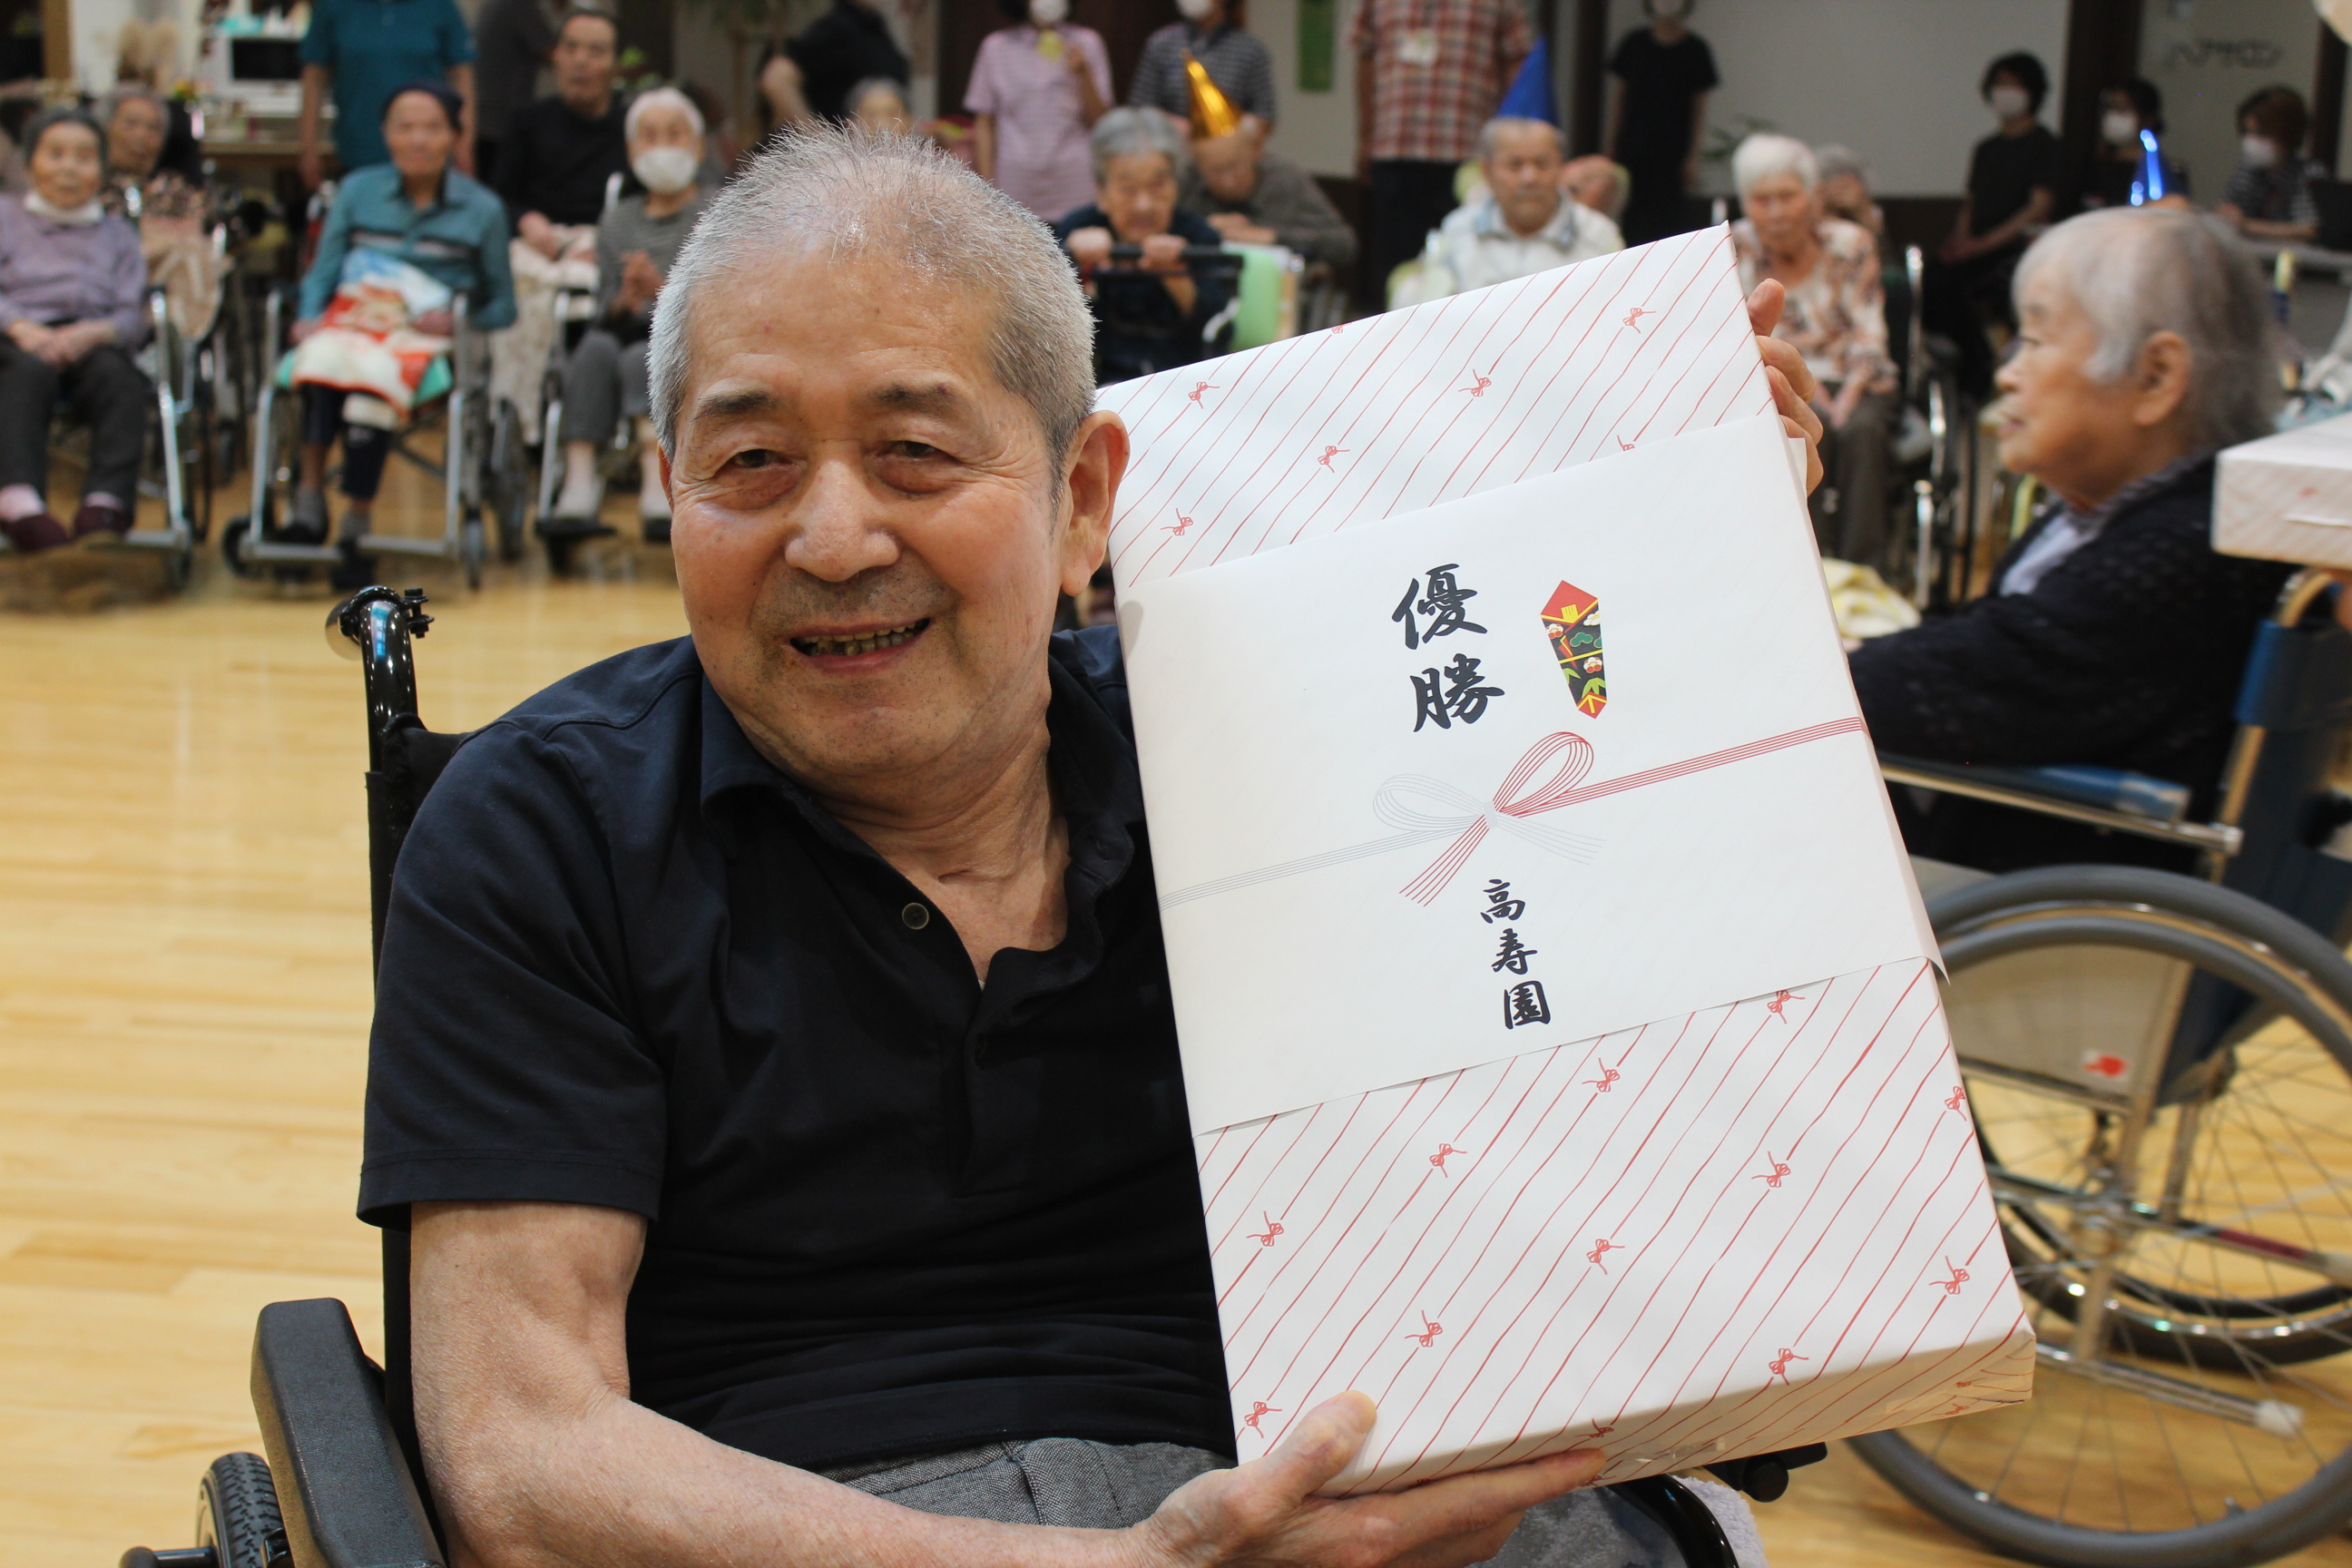 優勝
高寿園